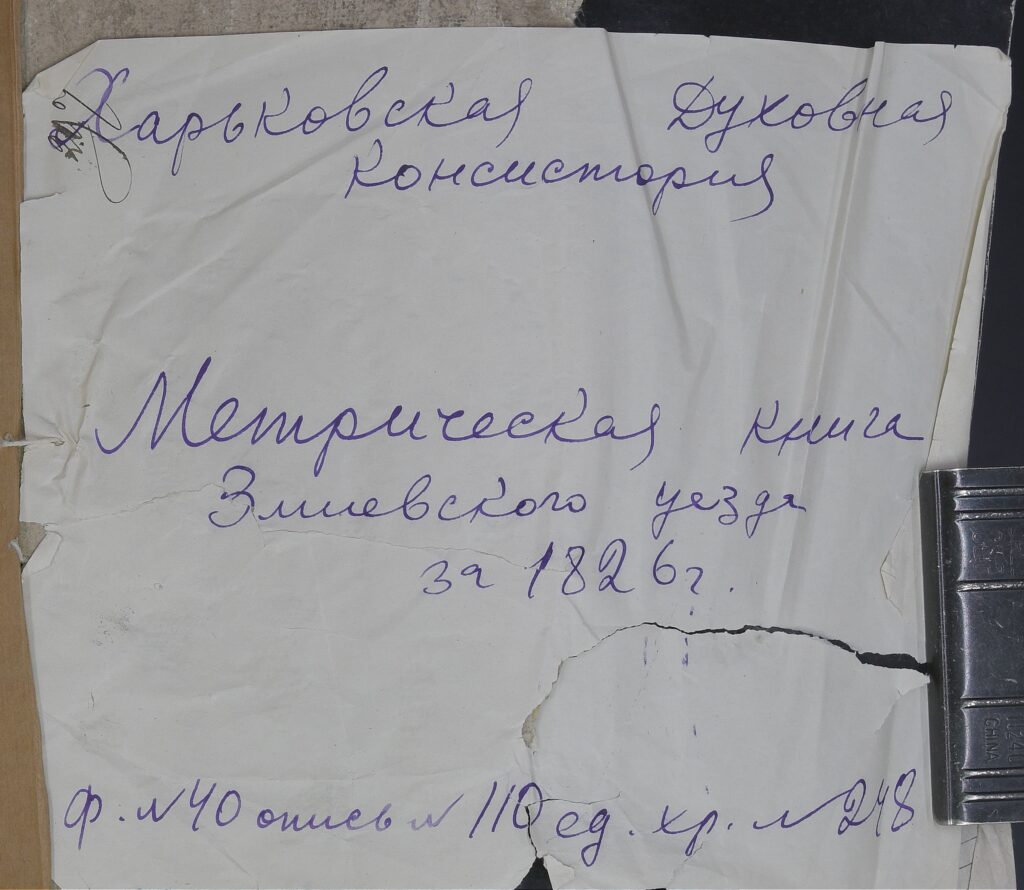 Харьковская Духовная
консистория
Метрическая книга
Змиевского уезда
за 1826 г.
ф. № 40 опись № 110 ед. хр. № 248
CHINA